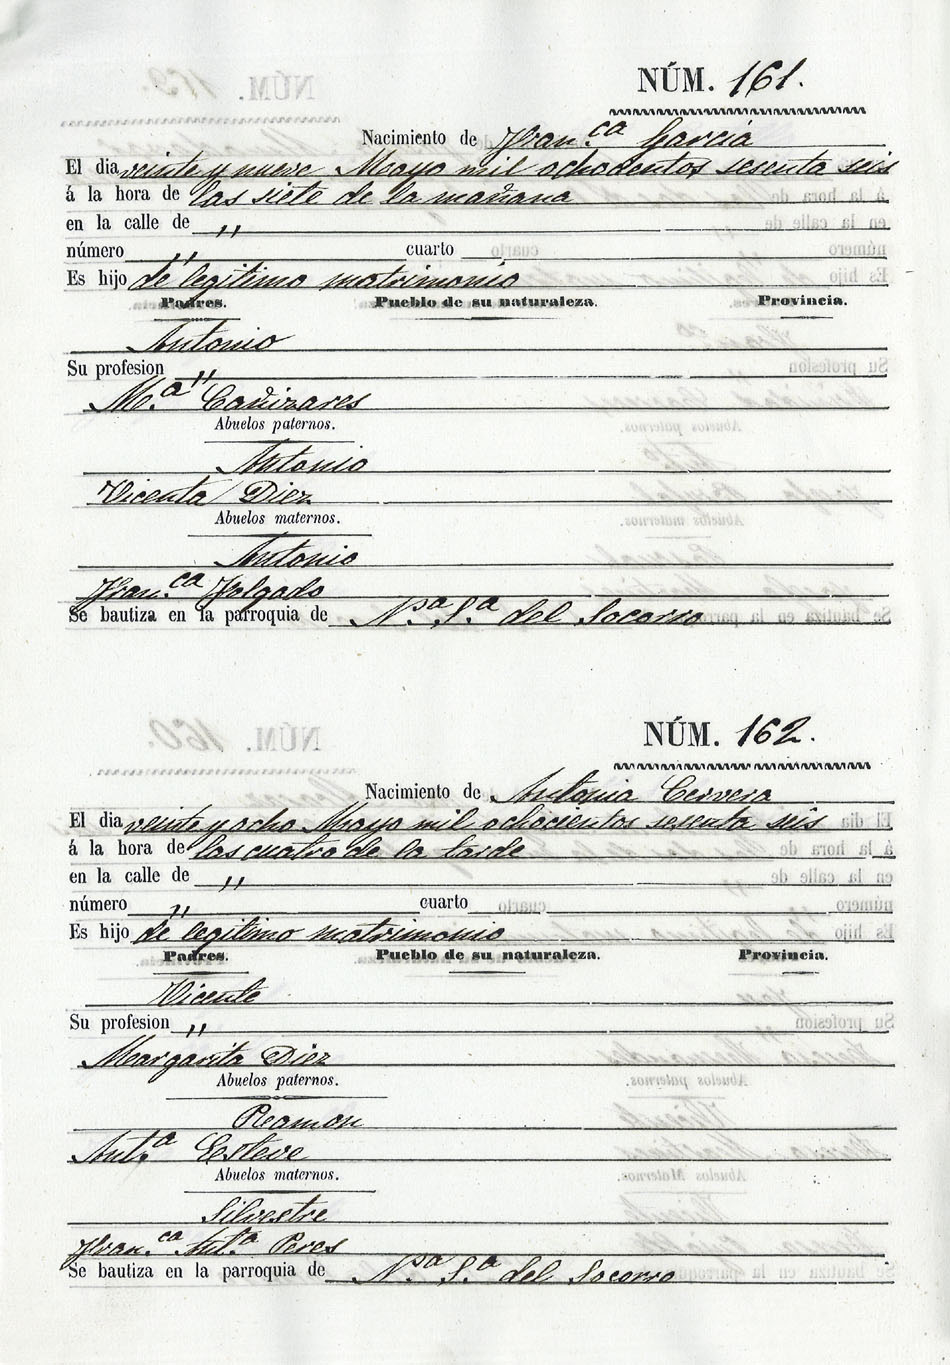 NÚM. 161.
Nacimiento de Fran.ca Garcia
El dia veinte y nueve Mayo mil ochocientos sesenta seis
á la hora de las siete de la mañana
en la calle de "
número " cuarto
Es hijo de legitimo matrimonio
Padres. Pueblo de su naturaleza. Provincia.
Antonio
Su profesion "
M.a Cañizares
Abuelos paternos.
Antonio
Vicenta Diez
Abuelos maternos.
Antonio
Fran.ca Folgado
Se bautiza en la parroquia de N.a S.a del Socorro
NÚM. 162.
Nacimiento de Antonia Cervera
El dia veinte y ocho Mayo mil ochocientos sesenta seis
á la hora de las cuatro de la tarde
en la calle de "
número " cuarto
Es hijo de legitimo matrimonio
Padres. Pueblo de su naturaleza. Provincia.
Vicente
Su profesion "
Margarita Diez
Abuelos paternos.
Ramon
Ant.a Esteve
Abuelos maternos.
Silvestre
Fran.ca Ant.a Peres
Se bautiza en la parroquia de N.a S.a del Socorro